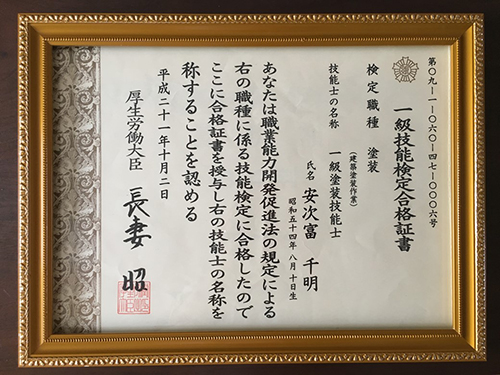 第〇九-1-〇六〇-四七-〇〇〇六号
一級技能検定合格証書
検定職種 塗装
(建築塗装作業)
技能士の名称 一級塗装技能士
氏名 安次富 千明
昭和五十四年 八月十日生
あなたは職業能力開発促進法の規定による
右の職種に係る技能検定に合格したので
ここに合格証書を授与し右の技能士の名称を
称することを認める
平成二十一年十月二日
厚生労働大臣 長妻 昭